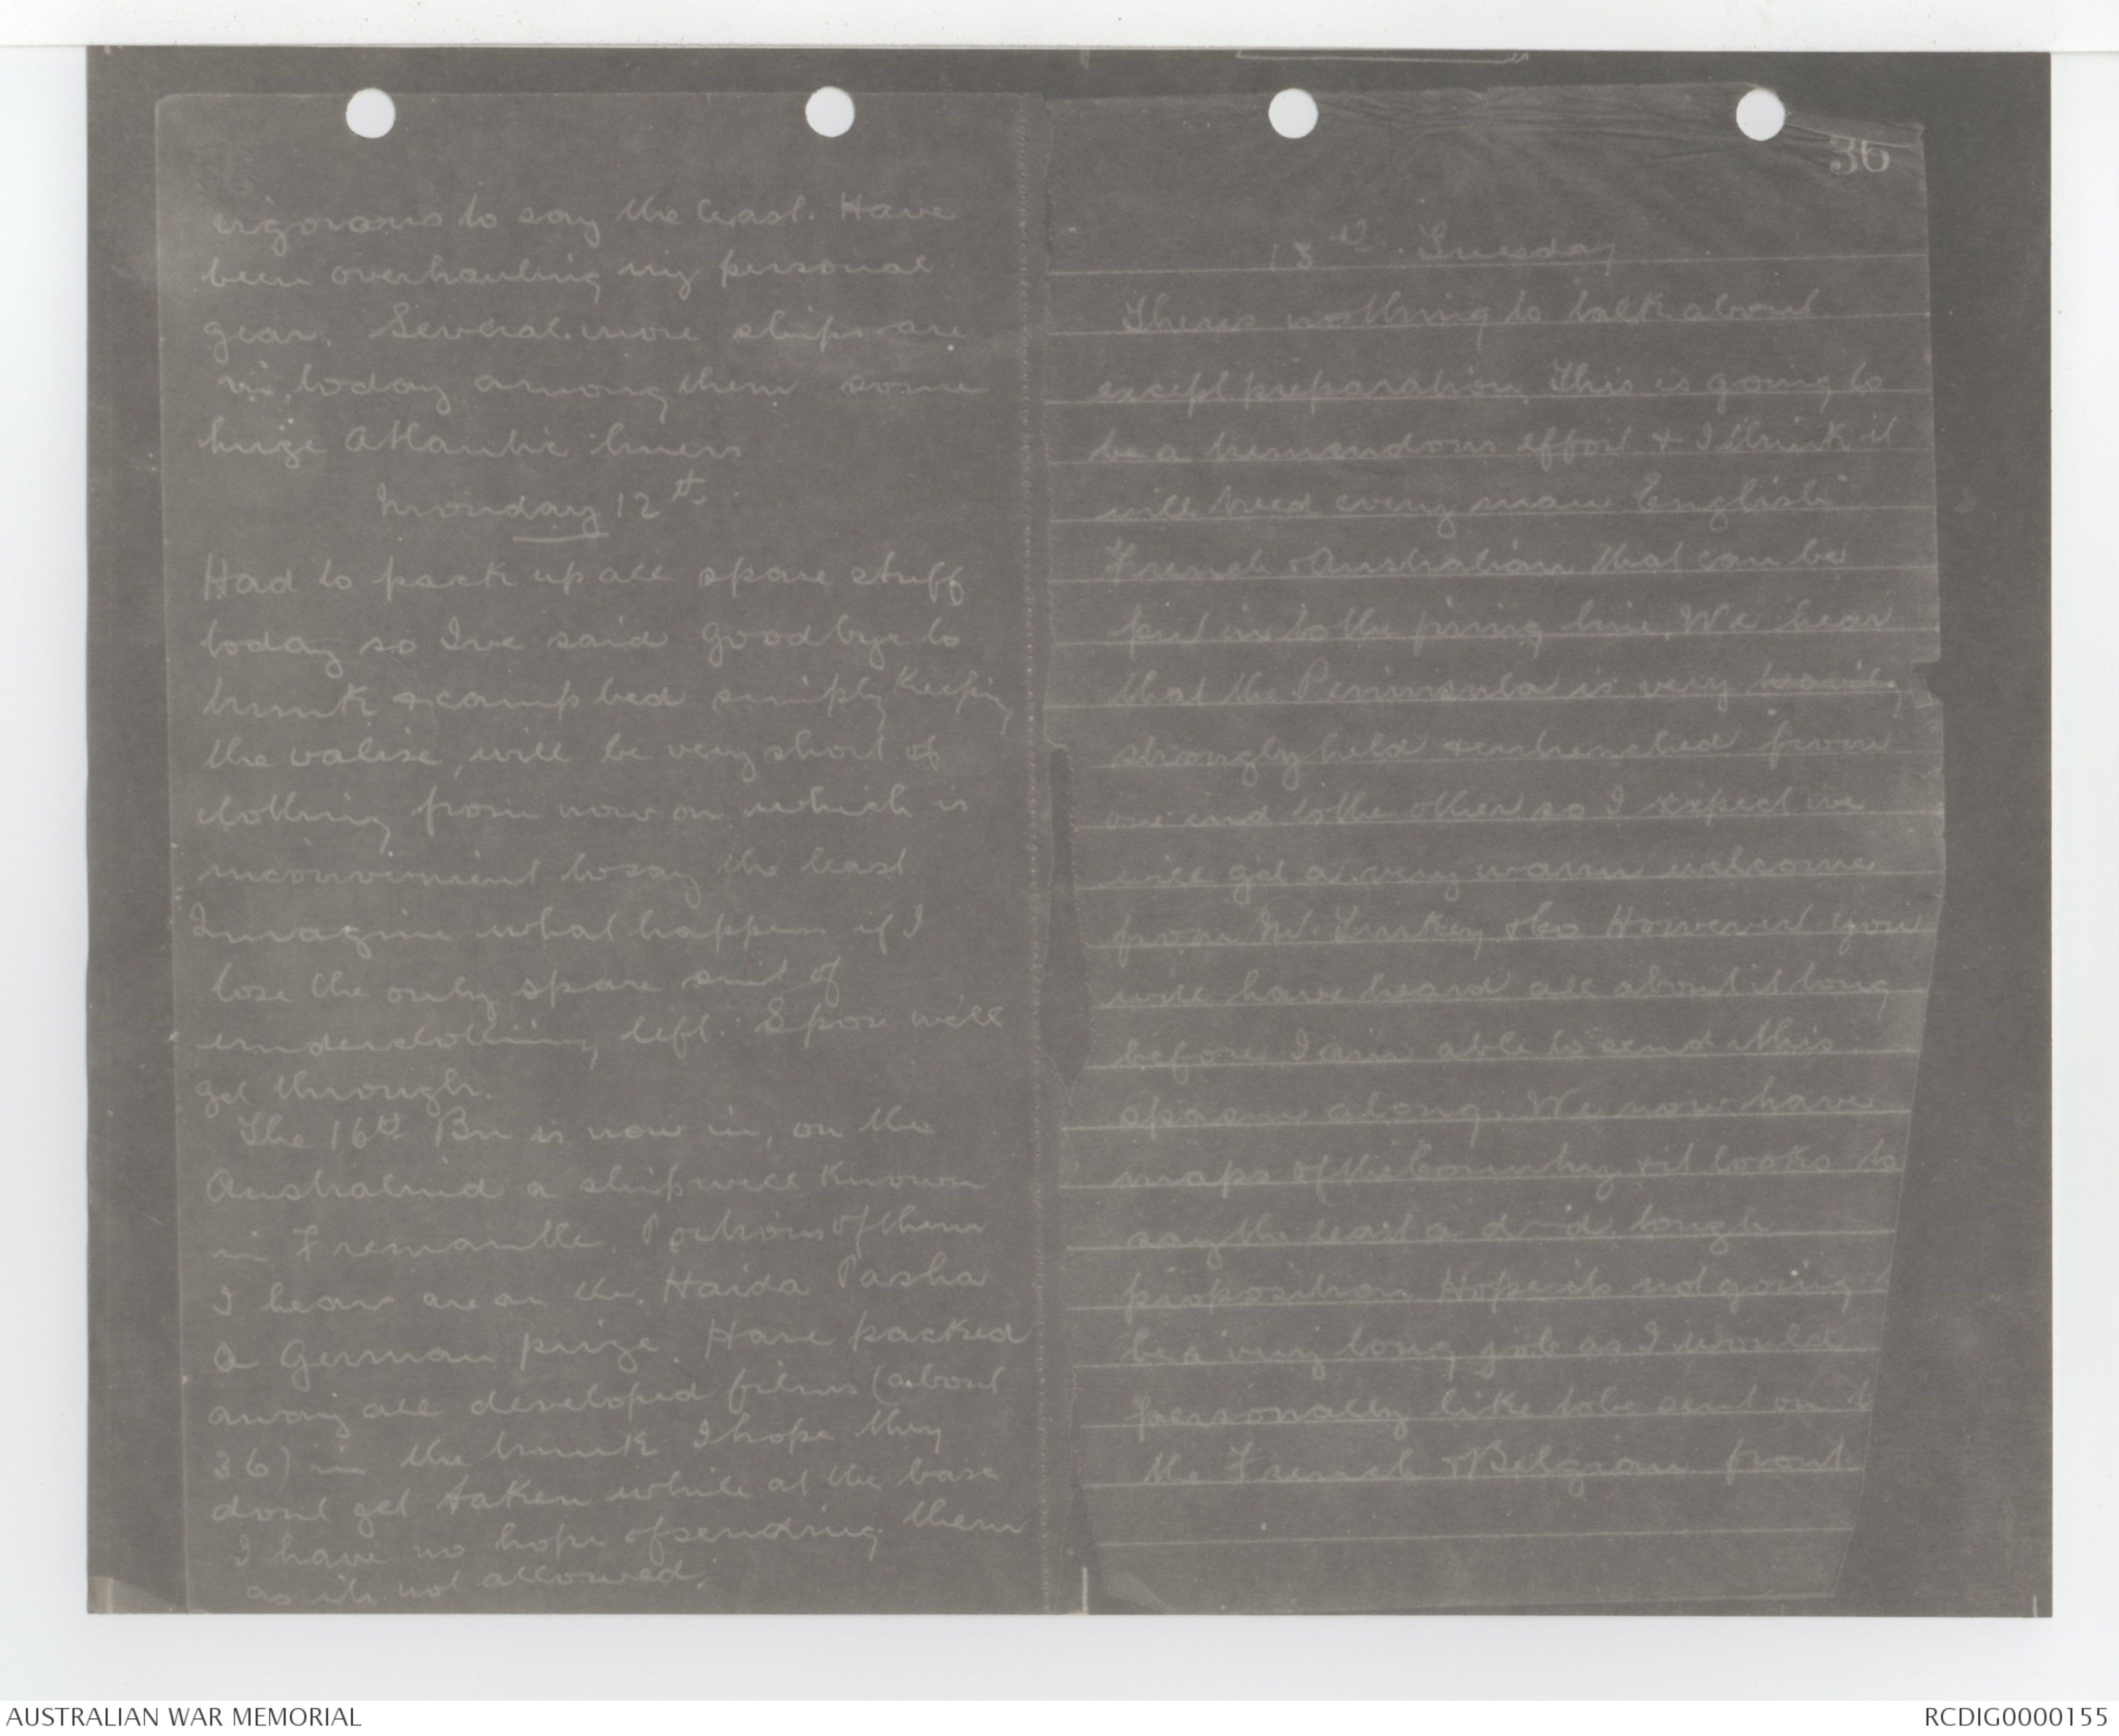 vigorous to say the least. Have
been overhauling my personal
gear. Several more ships are
in today among them some
huge Atlantic liners
Monday 12th
Had to pack up all spare stuff
today so Ive said goodbye to
trunk & camp bed simply keeping
the valise, will be very short of
clothing from now on which is
inconvenient to say the least
Imagine what happens if I
lose the only spare suit of
underclothing left. Spose will
get through.
The 16th Bn is now in, on the
Australind a ship well known
in Fremantle. Portions of them
I hear are on the Haida Pasha
a German prize. Have packed
away all developed films (about
36) in the trunk I hope they
dont get taken while at the base
I have no hope of sending them
as its not allowed.
36
13th Tuesday
Theres nothing to talk about
except preparation. This is going to
be a tremendous effort & I think it
will need every man English
French & Australian that can be
put into the firing line. We hear
that the Peninsula is very
strongly held & entrenched from
one end to the other so I expect we
will get a very warm welcome
from Mr. Turkey & Co However you
will have heard all about it long
before I am able to send this
spasm along. We now have
maps of the Country & it looks to
say the least a d-d tough
proposition Hope its not going
be a very long job as I would
personally like to be sent on to
the French & Belgian front.
AUSTRALIAN WAR MEMORIAL
RCDIG0000155